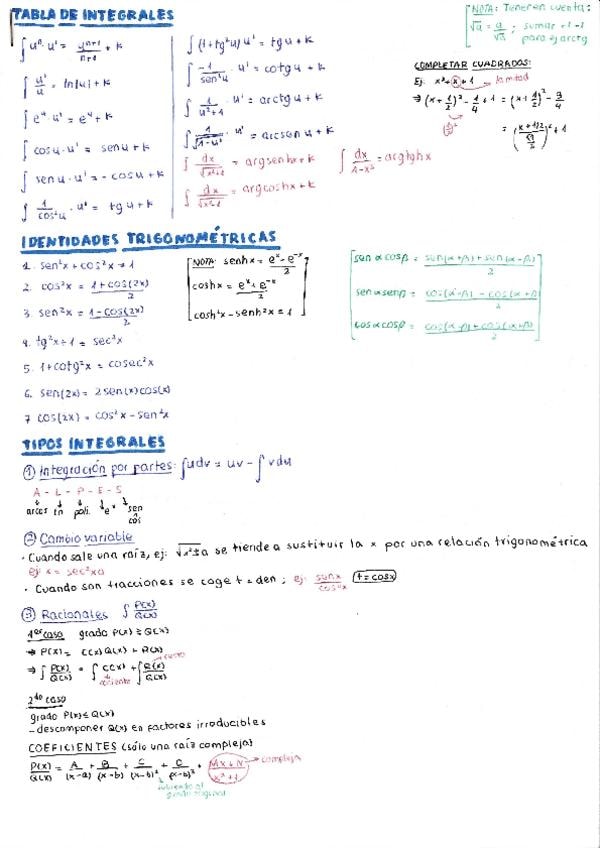 TABLA DE INTEGRALES
∫ uⁿ · u' = uⁿ⁺¹/n+1 + K
∫ u'/u = ln|u| + K
∫ eᵘ · u' = eᵘ + K
∫ cos u · u' = sen u + K
∫ sen u · u' = - cos u + K
∫ 1/cos²u · u' = tg u + K
∫ (1+tg²u) u' = tg u + K
∫ -1/sen²u · u' = cotg u + K
∫ 1/u²+1 · u' = arctg u + K
∫ 1/√1-u² · u' = arcsen u + K
∫ dx/√x²+1 = argsenhx + K
∫ dx/√x²-1 = argcoshx + K
∫ dx/1-x² = argtghx
NOTA: Tener en cuenta:
√a = a/√a ; sumar +1 -1
para ej arctg
COMPLETAR CUADRADOS:
Ej. x² + x + 1 → la mitad
IDENTIDADES TRIGONOMÉTRICAS
1. sen²x + cos²x = 1
2. cos²x = 1 + cos(2x)/2
3. sen²x = 1 - cos(2x)/2
4. tg²x + 1 = sec²x
5. 1 + cotg²x = cosec²x
6. sen(2x) = 2 sen(x) cos(x)
7 cos(2x) = cos²x - sen²x
NOTA: senhx = eˣ - e⁻ˣ/2
coshx = eˣ + e⁻ˣ/2
cosh²x - senh²x = 1
sen α cos β = sen(α+β) + sen(α-β)/2
sen α sen β = cos(α-β) - cos(α+β)/2
cos α cos β = cos(α-β) + cos(α+β)/2
TIPOS INTEGRALES
① Integración por partes: ∫ u dv = uv - ∫ v du
A - L - P - E - S
arcos ln poli. eˣ sen
cos
② Cambio variable
· Cuando sale una raíz, ej: √x²±a se tiende a sustituir la x por una relación trigonométrica
ej: x = sec²xa
· Cuando son fracciones se coge t = den ; ej: senx/cos²x t = cosx
③ Racionales ∫ P(x)/Q(x)
1er caso grado P(x) ≥ Q(x)
→ P(x) = C(x) Q(x) + R(x)
⇒ ∫ P(x)/Q(x) = ∫ C(x) + ∫ R(x)/Q(x)
2do caso
grado P(x) ≤ Q(x)
- descomponer Q(x) en factores irreducibles
COEFICIENTES (sólo una raíz compleja)
P(x)/Q(x) = A/(x-a) + B/(x-b) + C/(x-b)² + C/(x-b)³ + Mx+N/x²+1 → compleja